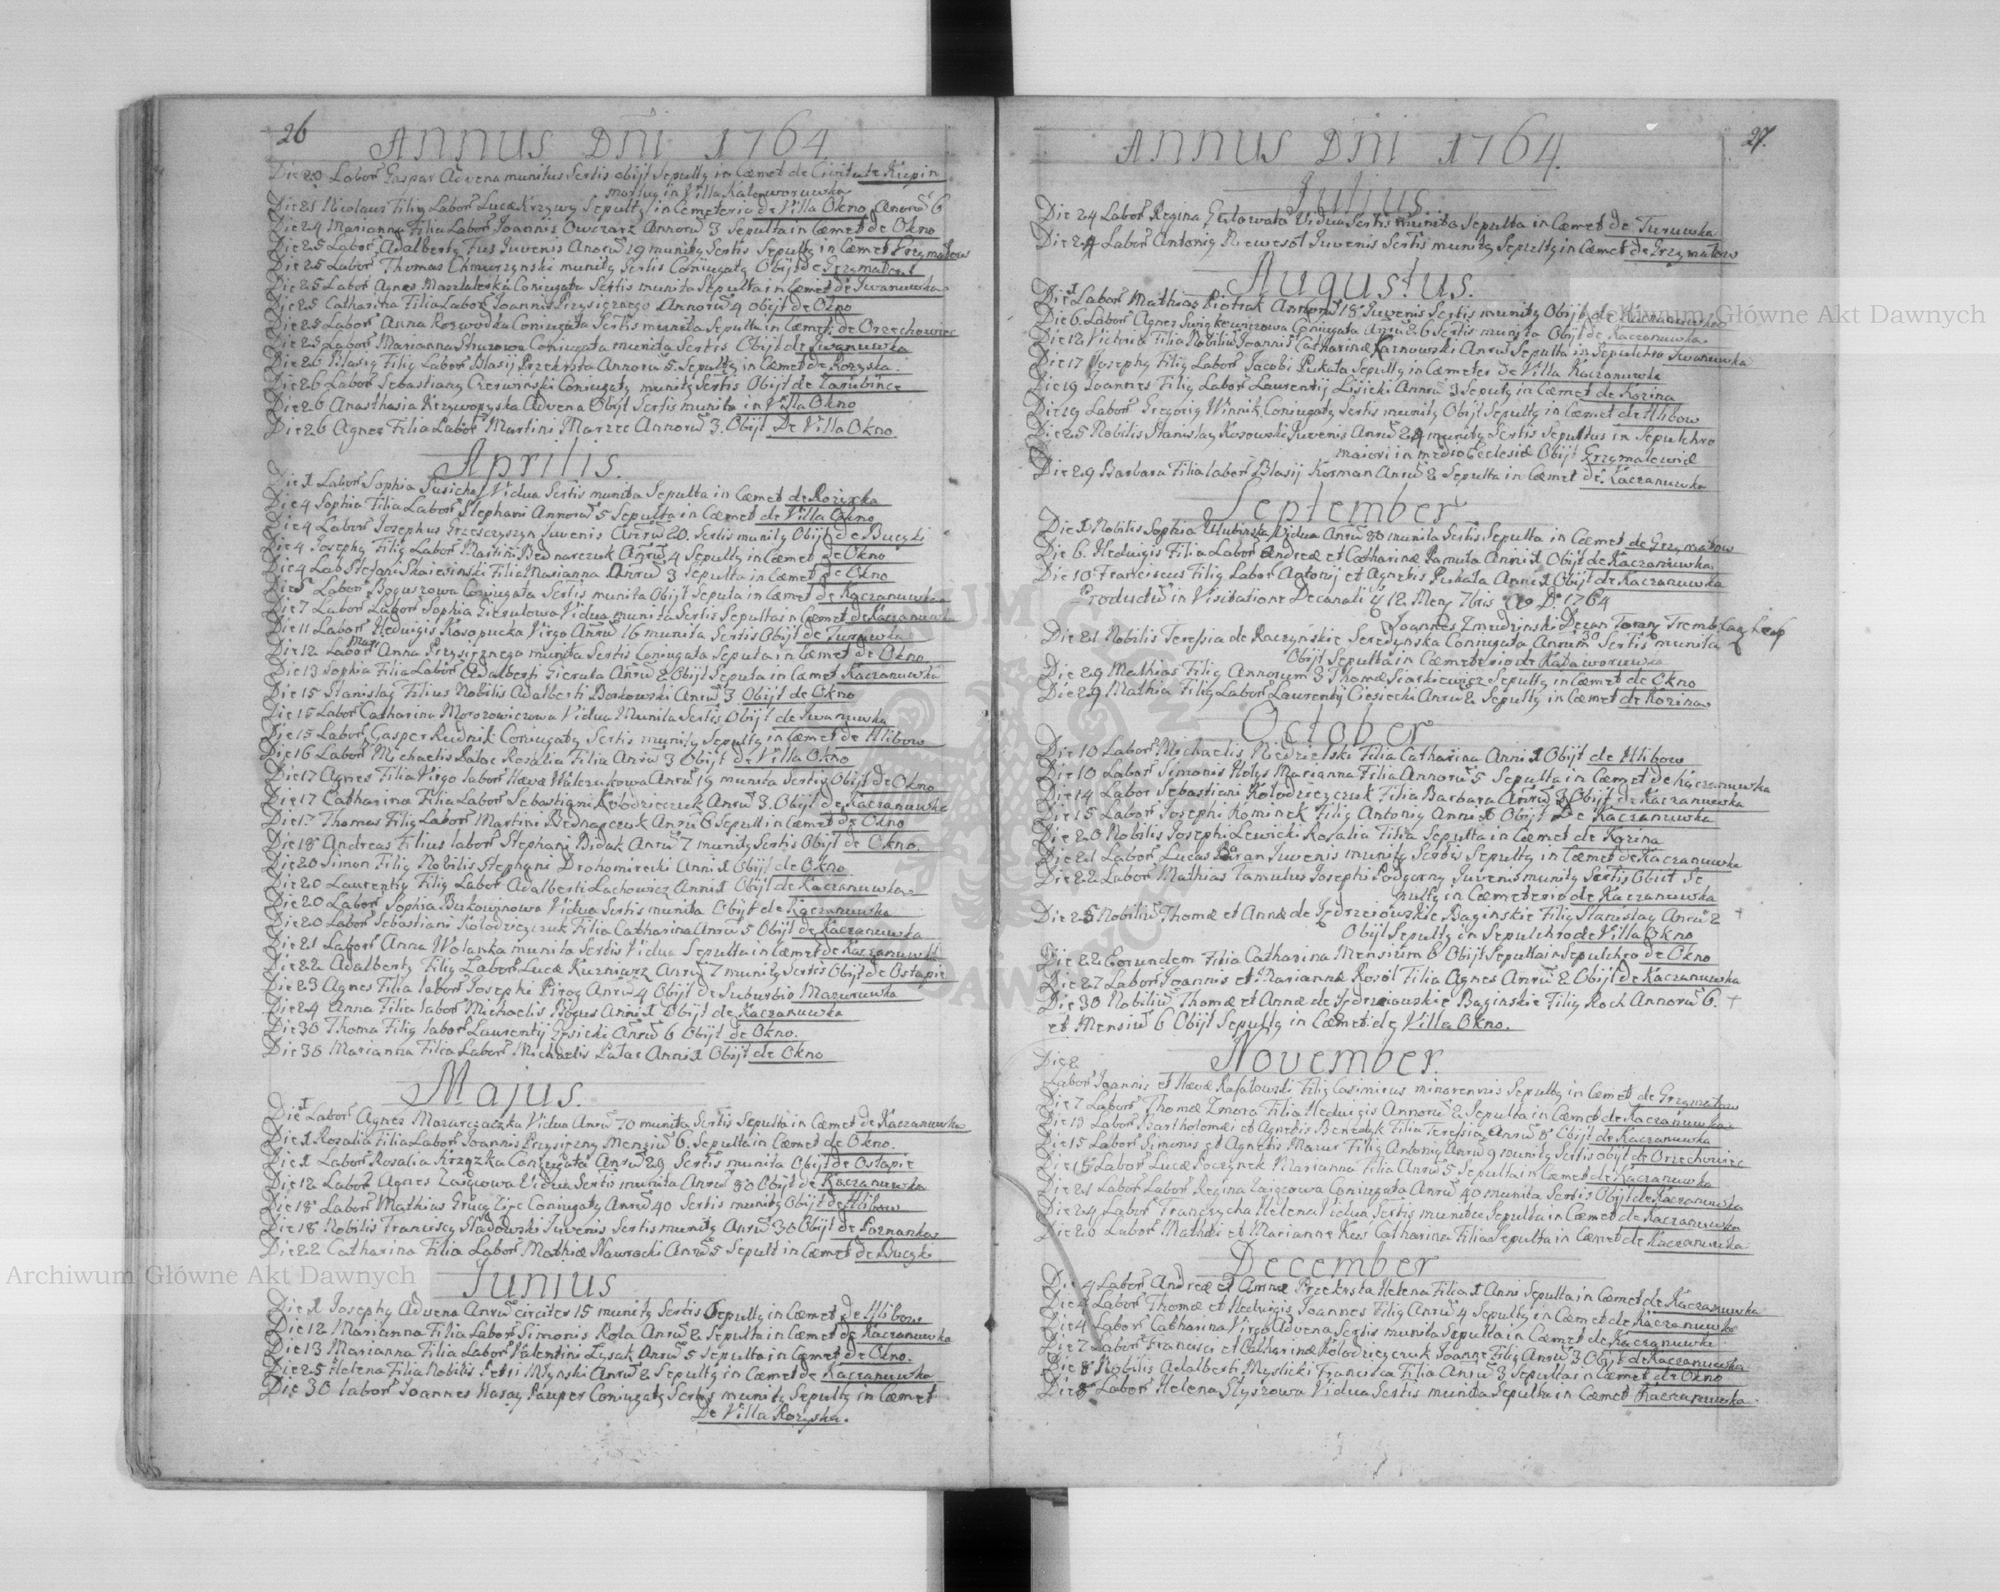 26
ANNUS DNI 1764.
Die 20 Labor Gaspar Advena munitus Sertis obijt Sepulty in Cœmet de Civitate Kupin
mortuus in Villa Kalaworuwka
Die 21 Nicolaus Filiy Labor Lucæ Krzywy Sepulty in Cemeterio de Villa Okno Anorū 6
Die 24 Marianna Filia Labor Joannis Owczarz Annorū 3 Sepulta in Cœmet de Okno
Die 25 Labor Adalberty Fus Juvenis Anorū 19 munity Sertis Sepulty in Cœmet Grzymalow
Die 25 Labor Thomas Chmurzynski munity Sertis Coniugaty Obijt de Grzymalow
Die 25 Labor Agnes Maszlaleska Coniugata Sertis munita Sepulta in Cœmet de Iwanuwka
Die 25 Catharina Filia Labor Joannis Przysięznego Annorū 4 obijt de Okno
Die 25 Labor Anna Rozwodka Coniugata Sertis munita Sepulta in Cœmet de Orzechowiec
Die 25 Labor Marianna Coniugata munita Sertis Obijt de Iwanuwka
Die 26 Blasiy Filiy Labor Blasij Przekrsta Annorū 5 Sepulty in Cœmet de Rozyska
Die 26 Labor Sebastiany Czerwinski Coniugaty munity Sertis Obijt de Zarubince
Die 26 Anasthasia Krzywopyska Advena Obijt Sertis munita in Villa Okno
Die 26 Agnes Filia Labor Martini Marzec Annorū 3. Obijt De Villa Okno
Aprilis.
Die 1 Labor Sophia Vidua Sertis munita Sepulta in Cœmet de Rozyska
Die 4 Sophia Filia Labor Stephani Annorū 5 Sepulta in Cœmet de Villa Okno
Die 4 Labor Josephus Grzesczyszyn Juvenis Anorū 20. Sertis munity Obijt de Bucyki
Die 4 Josephy Filiy Labor Martini Bednarczuk Anrū 4 Sepulty in Cœmet de Okno
Die 4 Lab Stefani Skaiewinski Filia Marianna Anrū 3 Sepulta in Cœmet de Okno
Die 5 Labor Boguszowa Coniugata Sertis munita Obijt Sepulta in Cœmet de Kaczanuwka
Die 7 Labor Labor Sophia Gierulowa Vidua munita Sertis Sepulta in Cœmet de Kaczanuwka
Die 11 Labor Hedwigis Kosopucka Virgo Anrū 16 munita Sertis Obijt de Turuwka
Die 12 Labor Anna Przysięcznego munita Sertis Coniugata Sepulta in Cœmet de Okno
Die 13 Sophia Filia Labor Adalberti Gierula Anrū 2 Obijt Sepulta in Cœmet Kaczanuwka
Die 15 Stanislay Filius Nobilis Adalberti Borkowski Anrū 3 Obijt de Okno
Die 15 Labor Catharina Morozowiczowa Vidua Munita Sertis Obijt de Iwanuwka
Die 15 Labor Gasper Rudnik Coniugaty Sertis munity Sepulty in Cœmet de Hlibow
Die 16 Labor Michaelis Lalac Rosalia Filia Anrū 3 Obijt de Villa Okno
Die 17 Agnes Filia Virgo labor Hævæ Walczukowa Anrū 19 munita Sertis Obijt de Okno
Die 17 Catharina Filia Labor Sebastiani Kolodzieczuk Anrū 3. Obijt de Kaczanuwka
Die 17 Thomas Filiy Labor Martini Bednarczuk Anrū 6 Sepult in Cœmet de Okno
Die 18 Andreas Filius labor Stephani Bidak Anrū 7 munity Sertis Obijt de Okno.
Die 20 Simon Filiy Nobilis Stephani Drohomirecki Anni 1 Obijt de Okno
Die 20 Laurenty Filiy Labor Adalberti Lachowicz Anni 1 Obijt de Kaczanuwka
Die 20 Labor Sophia Bukowinowa Vidua Sertis munita Obijt de Kaczanuwka
Die 20 Labor Sebastiani Kolodzieczuk Filia Catharina Anrū 5 Obijt de Kaczanuwka
Die 21 Labor Anna Wolanka munita Sertis Vidua Sepulta in Cœmet de Kaczanuwka
Die 22 Adalberty Filiy Labor Lucæ Kuzniarz Anrū 7 munity Sertis Obijt de Ostapie
Die 23 Agnes Filia labor Josephi Pirog Anrū 4 Obijt de Suburbio Mazuruwka
Die 24 Anna Filia labor Michaelis Bogus Anni 1 Obijt de Kaczanuwka
Die 30 Thoma Filiy labor Laurentij Gęsicki Anrū 6 Obijt de Okno.
Die 30 Marianna Filia Labor Michaelis Lalac Anni 1 Obijt de Okno
Majus.
Die 1 Labor Agnes Mazurczaczka Vidua Anrū 70 munita Sertis Sepulta in Cœmet de Kaczanuwka
Die 1 Rosalia Filia Labor Joannis Przysiezny Mensiū 6. Sepulta in Cœmet de Okno.
Die 1 Labor Rosalia Krzyzka Coniugata Anrū 29 Sertis munita Obijt de Ostapie
Die 12 Labor Agnes Zaigcowa Vidua Sertis munita Anrū 80 Obijt de Kaczanuwka
Die 18 Labor Mathias Coniugaty Anrū 40 Sertis munity Obijt de Hlibow
Die 18 Nobilis Franciscy Sladowski Juvenis Sertis munity Anrū 30 Obijt de Poznanka
Die 22 Catharina Filia Labor Mathiæ Nawrocki Anrū 5 Sepult in Cœmet de Bucyki
Junius
Die 1 Josephy Advena Anrū circiter 15 munity Sertis Sepulty in Cœmet de Hlibow
Die 12 Marianna Filia Labor Simonis Kola Anrū 2 Sepulta in Cœmet de Kaczanuwka
Die 13 Marianna Filia Labor Valentini Lysak Anrū 5 Sepulta in Cœmet de Okno.
Die 25 Helena Filia Nobilis Petri Mlynski Anrū 2 Sepulty in Cœmet de Kaczanuwka
Die 30 labor Joannes Hasay Pauper Coniugaty Sertis munity Sepulty in Cœmet
De Villa Rozyska.
27.
ANNUS DNI 1764.
Julius
Die 24 Labor Regina Vidua Sertis munita Sepulta in Cœmet de Turuwka
Die 24 Labor Antoniy Niewesol Juvenis Sertis munity Sepulty in Cœmet de Grzymalow
Augustus.
Die 1 Labor Mathias Piotrak Annorū 18 Juvenis Sertis munity Obijt de Kaczanuwka
Die 6. Labor Agnes Swiątkiewiczowa Coniugata Anrū 26 Sertis munita Obijt de Kaczanuwka
Die 12 Victoria Filia Nobiliū Joannis Catharinæ Karnowski Anrū Sepulta in Sepulchro Iwanuwka
Die 17 Josephy Filiy Labor Jacobi Pukala Sepulty in Cœmeter de Villa Kaczanuwka
Die 19 Joannes Filiy Labor Laurentij Lisicki Annrū 3 Seputy in Cœmet de Kozina
Die 19 Labor Gregoriy Winnik Coniugaty Sertis munity Obijt Sepulty in Cœmet de Hlibow
Die 25 Nobilis Stanislay Kosowski Juvenis Anrū 24 munity Sertis Sepultus in Sepulchro
maiori in medio Ecclesiæ Obijt Grzymaloviæ
Die 29 Barbara Filia labor Blasij Korman Anrū 2 Sepulta in Cœmet de Kaczanuwka
September
Die 1 Nobilis Sophia Vidua Anrū 80 munita Sertis Sepulta in Cœmet de Grzymalow
Die 6. Hedwigis Filia Labor Andreæ et Catharinæ Ramula Anni 1 Obijt de Kaczanuwka
Die 10 Franciscus Filiy Labor Antonij et Agnetis Pukala Anni 1 Obijt de Kaczanuwka
Productū in Visitatione Decanali 12. Men 7bris Ao D. 1764
Joannes Zmudzinski Decan
Die 21 Nobilis Teressia de Raczynskie Seredynska Coniugata Annorū 30 Sertis munita
Obijt Sepulta in Cœmeterio de Kalaworuwka
Die 29 Mathias Filiy Annorum 3 Thomæ Siarkiewicz Sepulty in Cœmet de Okno
Die 29 Mathia Filiy Labor Laurentij Ciesiecki Anrū 2 Sepulty in Cœmet de Kozina
October
Die 10 Labor Michaelis Niedzielski Filia Catharina Anni 1 Obijt de Hlibow
Die 10 Labor Simonis Holys Marianna Filia Annorū 5 Sepulta in Cœmet de Kaczanuwka
Die 14 Labor Sebastiani Kolodzieyczuk Filia Barbara Anrū 3 Obijt de Kaczanuwka
Die 15 Labor Josephi Kominek Filiy Antoniy Anni 1 Obijt De Kaczanuwka
Die 20 Nobilis Josephi Lewicki Rosalia Filia Sepulta in Cœmet de Kozina
Die 21 Labor Lucas Baran Juvenis munity Sertis Sepulty in Cœmet de Kaczanuwka
Die 22 Labor Mathias Famulus Josephi Podgorny Juvenis munity Sertis Obiit Se
pulty in Cœmeterio de Kaczanuwka
Die 25 Nobiliū Thomæ et Annæ de Jędrzeiowskie Baginskie Filiy Stanislay Anrū 2 +
Obijt Sepulty in Sepulchro de Villa Okno
Die 22 Eorundem Filia Catharina Mensium 6 Obijt Sepulta in Sepulchro de Okno
Die 27 Labor Joannis et Mariannæ Rosół Filia Agnes Anrū 2 Obijt de Kaczanuwka
Die 30 Nobiliū Thomæ et Annæ de Jędrzeiowskie Baginskie Filiy Roch Annorū 6. +
et Mensiū 6 Obijt Sepulty in Cœmet de Villa Okno.
November.
Die 2
Labor Joannis et Hævæ Rafalowski Filiy Casimirus minorennis Sepulty in Cœmet de Grzymalow
Die 7 Labor Thomæ Zmora Filia Hedwigis Annorū 2 Sepulta in Cœmet de Kaczanuwka
Die 13 Labor Bartholomæi et Agnetis Benedyk Filia Teressia Anrū 8 Obijt de Kaczanuwka
Die 15 Labor Simonis et Agnetis Mazur Filiy Antoniy Anrū 9 munity Sertis obijt de Orzechowiec
Die 15 Labor Lucæ Poczynek Marianna Filia Anrū 5 Sepulta in Cœmet de Kaczanuwka
Die 21 Labor Labor Regina Zaigcowa Coniugata Anrū 40 munita Sertis Obijt de Kaczanuwka
Die 24 Labor Franczycha Helena Vidua Sertis munita Sepulta in Cœmet de Kaczanuwka
Die 26 Labor Mathæi et Mariannæ Kus Catharina Filia Sepulta in Cœmet de Kaczanuwka
December
Die 4 Labor Andreæ et Annæ Przekrsta Helena Filia 1 Anni Sepulta in Cœmet de Kaczanuwka
Die 4 Labor Thomæ et Hedwigis Joannes Filiy Anrū 4 Sepulty in Cœmet de Kaczanuwka
Die 4 Labor Catharina Virgo Advena Sertis munita Sepulta in Cœmet de Kaczanuwka
Die 7 Labor Francisci et Catharinæ Kolodzieyczuk Joanne Filiy Anrū 3 Obijt de Kaczanuwka
Die 8 Nobilis Adalberti Myslicki Francisca Filia Anrū 3 Sepulta in Cœmet de Okno
Die 8 Labor Helena Slyszowa Vidua Sertis munita Sepulta in Cœmet Kaczanuwka
Archiwum Główne Akt Dawnych
Archiwum Główne Akt Dawnych